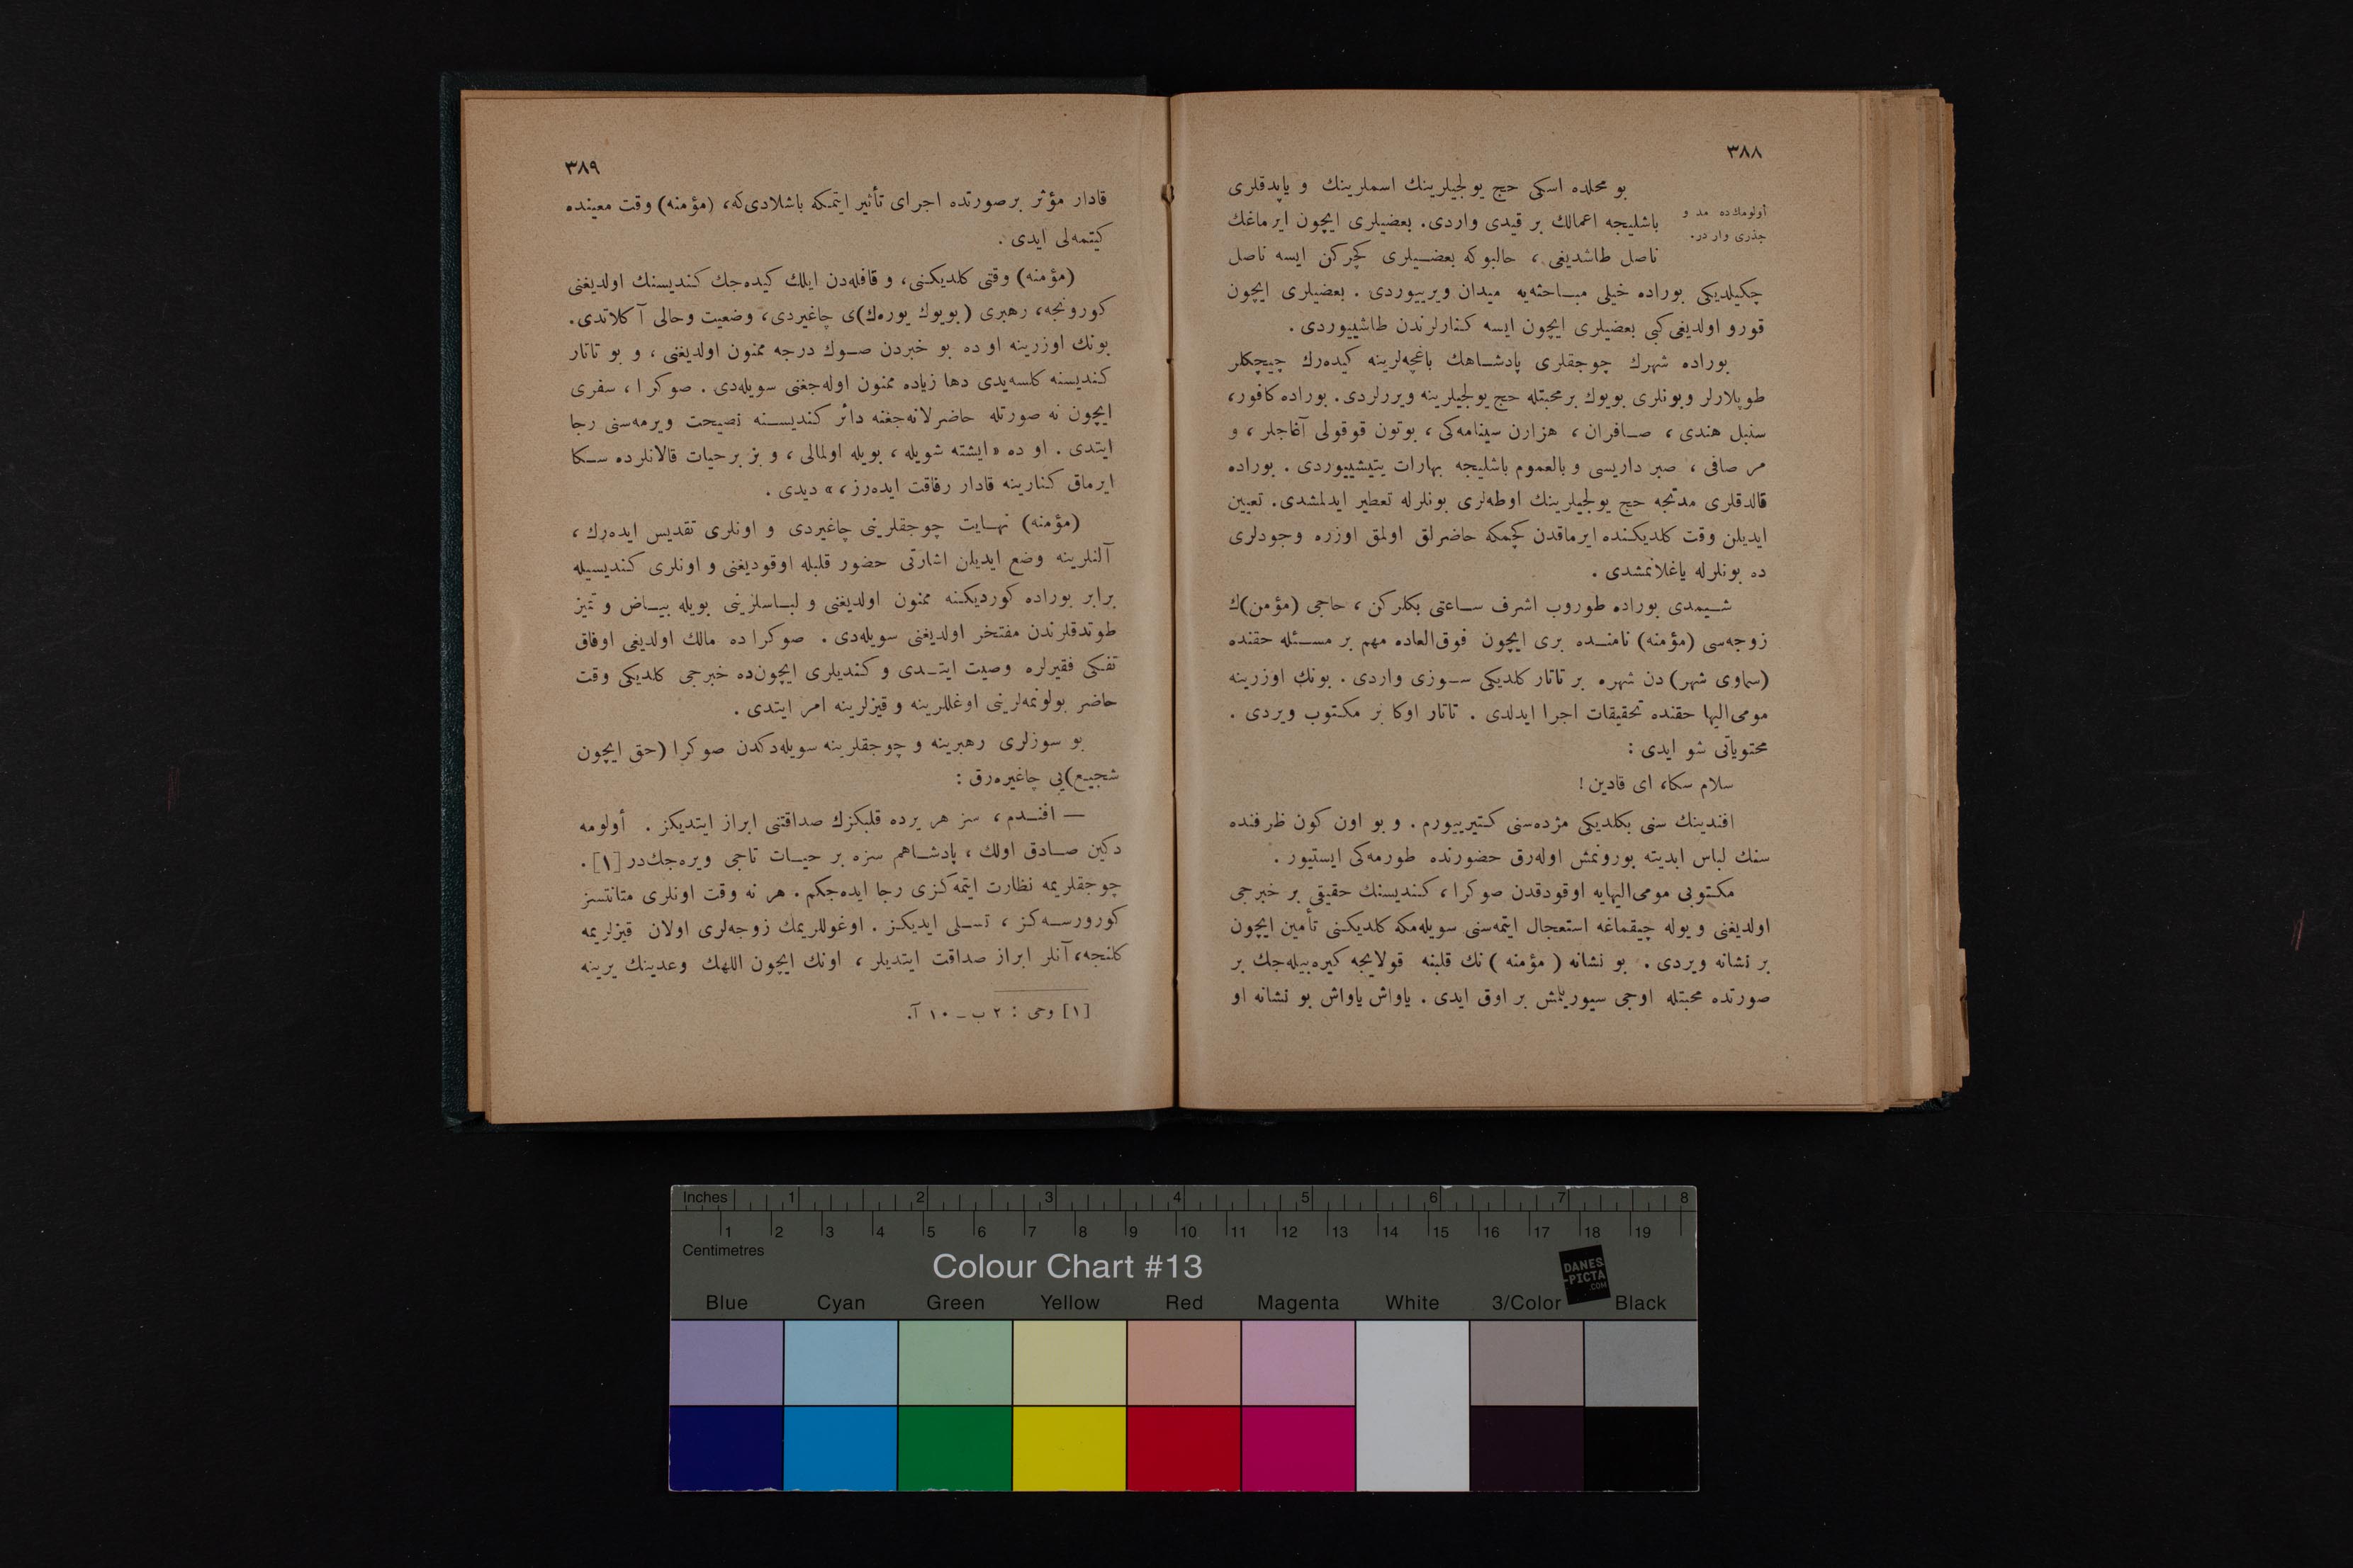 ٣٨٨
بو محلده اسكی حج یولجیلرینك اسملرینك و یاپدقلری
أولومك‌ده مد و
جذری وار در.
باشلیجه اعمالك بر قیدی واردی. بعضیلری ایچون ایرماغك
ناصل طاشدیغی ، حالبوكه بعضیلری كچركن ایسه ناصل
چكیلدیكی بوراده خیلی مباحثه‌یه میدان ویرییوردی . بعضیلری ایچون
قورو اولدیغی كبی بعضیلری ایچون ایسه كنارلرندن طاشییوردی .
بوراده شهرك چوجقلری پادشاهك باغچه‌لرینه كیده‌رك چیچكلر
طوپلارلر وبونلری بویوك برمحبتله حج یولجیلرینه ویررلردی. بوراده كافور،
سنبل هندی ، صافران ، هزارن سینامه‌كی ، بوتون قوقولی آغاجلر ، و
مر صافی ، صبر داریسی و بالعموم باشلیجه بهارات یتیشییوردی . بوراده
قالدقلری مدتجه حج یولجیلرینك اوطه‌لری بونلرله تعطیر ایدلمشدی. تعیین
ایدیلن وقت كلدیكنده ایرماقدن كچمكه حاضرلق اولمق اوزره وجودلری
ده بونلرله یاغلانمشدی .
شیمدی بوراده طوروب اشرف ساعتی بكلركن ، حاجی (مؤمن)ك
زوجه‌سی (مؤمنه) نامنده بری ایچون فوق‌العاده مهم بر مسئله حقنده
(سماوی شهر) دن شهره بر تاتار كلدیكی سوزی واردی . بونك اوزرینه
مومی‌الیها حقنده تحقیقات اجرا ایدلدی . تاتار اوكا بر مكتوب ویردی .
محتویاتی شو ایدی :
سلام سكا، ای قادین !
افندینك سنی بكلدیكی مژده‌سنی كتیرییورم . و بو اون كون ظرفنده
سنك لباس ابدیته بورونمش اوله‌رق حضورنده طورمه‌كی ایستیور .
مكتوبی مومی‌الیهایه اوقودقدن صوكرا ، كندیسنك حقیقی بر خبرجی
اولدیغنی و یوله چیقماغه استعجال ایتمه‌سنی سویله‌مكه كلدیكنی تأمین ایچون
بر نشانه ویردی . بو نشانه ( مؤمنه ) نك قلبنه قولایجه كیره‌بیله‌جك بر
صورتده محبتله اوجی سیوریلمش بر اوق ایدی . یاواش یاواش بو نشانه او
٣٨٩
قادار مؤثر برصورتده اجرای تأثیر ایتمكه باشلادی‌كه، (مؤمنه) وقت معینده
كیتمه‌لی ایدی .
(مؤمنه) وقتی كلدیكنی، و قافله‌دن ایلك كیده‌جك كندیسنك اولدیغنی
كورونجه، رهبری (بویوك یوره‌ك)ی چاغیردی، وضعیت وحالی آكلاتدی.
بونك اوزرینه او ده بو خبردن صوك درجه ممنون اولدیغنی ، و بو تاتار
كندیسنه كلسه‌یدی دها زیاده ممنون اوله‌جغنی سویله‌دی . صوكرا ، سفری
ایچون نه صورتله حاضرلانه‌جغنه دائر كندیسنه نصیحت ویرمه‌سنی رجا
ایتدی . او ده « ایشته شویله ، بویله اولمالی ، و بز برحیات قالانلرده سكا
ایرماق كنارینه قادار رفاقت ایده‌رز، » دیدی .
(مؤمنه) نهایت چوجقلرینی چاغیردی و اونلری تقدیس ایده‌رك ،
آلنلرینه وضع ایدیلن اشارتی حضور قلبله اوقودیغنی و اونلری كندیسیله
برابر بوراده كوردیكنه ممنون اولدیغنی و لباسلرینی بویله بیاض و تمیز
طوتدقلرندن مفتخر اولدیغنی سویله‌دی . صوكرا ده مالك اولدیغی اوفاق
تفكی فقیرلره وصیت ایتدی و كندیلری ایچون‌ده خبرجی كلدیكی وقت
حاضر بولونمه‌لرینی اوغللرینه و قیزلرینه امر ایتدی .
بو سوزلری رهبرینه و چوجقلرینه سویله‌دكدن صوكرا (حق ایچون
شجیع)یی چاغیره‌رق :
— افندم ، سز هر یرده قلبكزك صداقتنی ابراز ایتدیكز . أولومه
دكین صادق اولك ، پادشاهم سزه بر حیات تاجی ویره‌جك‌در [١] .
چوجقلریمه نظارت ایتمه‌كزی رجا ایده‌جكم . هر نه وقت اونلری متانتسز
كورورسه‌كز ، تسلی ایدیكز . اوغوللریمك زوجه‌لری اولان قیزلریمه
كلنجه، آنلر ابراز صداقت ایتدیلر ، اونك ایچون اللهك وعدینك یرینه
[١] وحی : ٢ ب ـ ١٠ آ.
Inches 1 2 3 4 5 6 7 8
1 2 3 4 5 6 7 8 9 10 11 12 13 14 15 16 17 18 19
Centimetres
Colour Chart #13
DANES
-PICTA
.COM
Blue Cyan Green Yellow Red Magenta White 3/Color Black